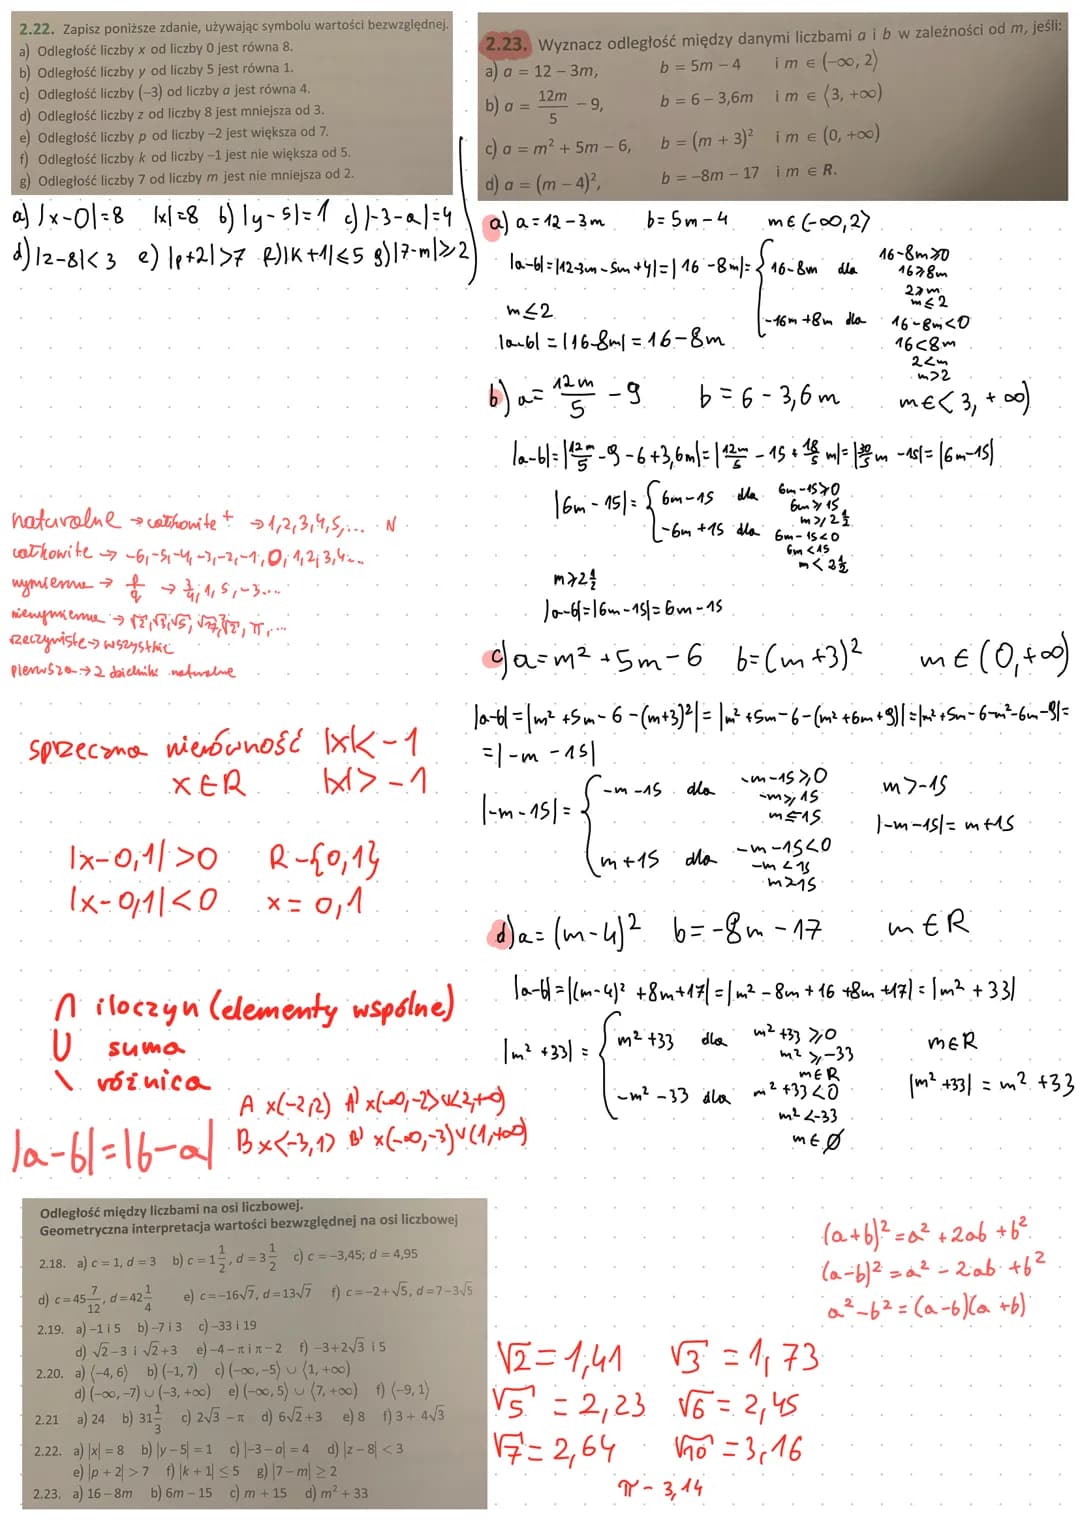 2.22. Zapisz poniższe zdanie, używając symbolu wartości bezwzględnej.
a) Odległość liczby x od liczby 0 jest równa 8.
b) Odległość liczby y od liczby 5 jest równa 1.
c) Odległość liczby (−3) od liczby a jest równa 4.
d) Odległość liczby z od liczby 8 jest mniejsza od 3.
e) Odległość liczby p od liczby −2 jest większa od 7.
f) Odległość liczby k od liczby −1 jest nie większa od 5.
g) Odległość liczby 7 od liczby m jest nie mniejsza od 2.
a) |x-0|=8 |x|=8 b) |y-5|=1 c) |-3-a|=4
d) |z-8|<3 e) |p+2|>7 f) |k+1|≤5 g) |7-m|≥2
2.23. Wyznacz odległość między danymi liczbami a i b w zależności od m, jeśli:
a) a = 12 − 3m, b = 5m − 4 i m ∈ (−∞, 2⟩
b) a = 12m/5 − 9, b = 6 − 3,6m i m ∈ ⟨3, +∞)
c) a = m² + 5m − 6, b = (m + 3)² i m ∈ (0, +∞)
d) a = (m − 4)², b = −8m − 17 i m ∈ R.
a) a=12-3m b=5m-4 m∈(-∞,2⟩
|a-b|=|12-3m-5m+4|=|16-8m|= { 16-8m dla 16-8m≥0
16≥8m
2≥m
m≤2
-16m+8m dla 16-8m<0
16<8m
2<m
m>2
m≤2
|a-b|=|16-8m|=16-8m
b) a=12m/5 -9 b=6-3,6m m∈<3,+∞)
|a-b|=|12m/5 -9-6+3,6m|=|12m/5 -15+18/5 m|=|30/5 m -15|=|6m-15|
|6m-15|= { 6m-15 dla 6m-15≥0
6m≥15
m≥2½
-6m+15 dla 6m-15<0
6m<15
m<2½
m≥2½
|a-b|=|6m-15|=6m-15
c) a=m²+5m-6 b=(m+3)² m∈(0,+∞)
|a-b|=|m²+5m-6-(m+3)²|=|m²+5m-6-(m²+6m+9)|=|m²+5m-6-m²-6m-9|=
=|-m-15|
|-m-15|= { -m-15 dla -m-15≥0
-m≥15
m≤15
m+15 dla -m-15<0
-m<15
m≥15
m>-15
|-m-15|=m+15
d) a=(m-4)² b=-8m-17 m∈R
|a-b|=|(m-4)²+8m+17|=|m²-8m+16+8m+17|=|m²+33|
|m²+33|= { m²+33 dla m²+33≥0
m²≥-33
m∈R
-m²-33 dla m²+33<0
m²<-33
m∈∅
m∈R
|m²+33|=m²+33
naturalne → całkowite + → 1,2,3,4,5,... N
całkowite → -6,-5,-4,-3,-2,-1,0,1,2,3,4...
wymierne → p/q → 3/4,1,5,-3....
niewymierne → √2,√3,√5, π,...
rzeczywiste → wszystkie
pierwsza → 2 dzielniki naturalne
sprzeczna nierówność |x|<-1
x∈R |x|>-1
|x-0,1|>0 R-{0,1}
|x-0,1|<0 x=0,1
∩ iloczyn (elementy wspólne)
∪ suma
\ różnica
A x(-2,2) A' x(-∞,-2>∪<2,+∞)
B x<-3,1> B' x(-∞,-3)∪(1,+∞)
|a-b|=|b-a|
Odległość między liczbami na osi liczbowej.
Geometryczna interpretacja wartości bezwzględnej na osi liczbowej
2.18. a) c = 1, d = 3 b) c = 1 1/2, d = 3 1/2 c) c = −3,45; d = 4,95
d) c = 45 7/12, d = 42 1/4 e) c = −16√7, d = 13√7 f) c = −2+√5, d = 7−3√5
2.19. a) −1 i 5 b) −7 i 3 c) −33 i 19
d) √2−3 i √2+3 e) −4−π i π−2 f) −3+2√3 i 5
2.20. a) ⟨−4, 6⟩ b) (−1, 7) c) (−∞, −5) ∪ ⟨1, +∞)
d) (−∞, −7) ∪ (−3, +∞) e) (−∞, 5) ∪ ⟨7, +∞) f) ⟨−9, 1⟩
2.21 a) 24 b) 31 1/3 c) 2√3 − π d) 6√2+3 e) 8 f) 3 + 4√3
2.22. a) |x| = 8 b) |y − 5| = 1 c) |−3−a| = 4 d) |z − 8| < 3
e) |p + 2| > 7 f) |k + 1| ≤ 5 g) |7 − m| ≥ 2
2.23. a) 16 − 8m b) 6m − 15 c) m + 15 d) m² + 33
(a+b)²=a²+2ab+b²
(a-b)²=a²-2ab+b²
a²-b²=(a-b)(a+b)
√2=1,41 √3=1,73
√5=2,23 √6=2,45
√7=2,64 √10=3,16
π-3,14